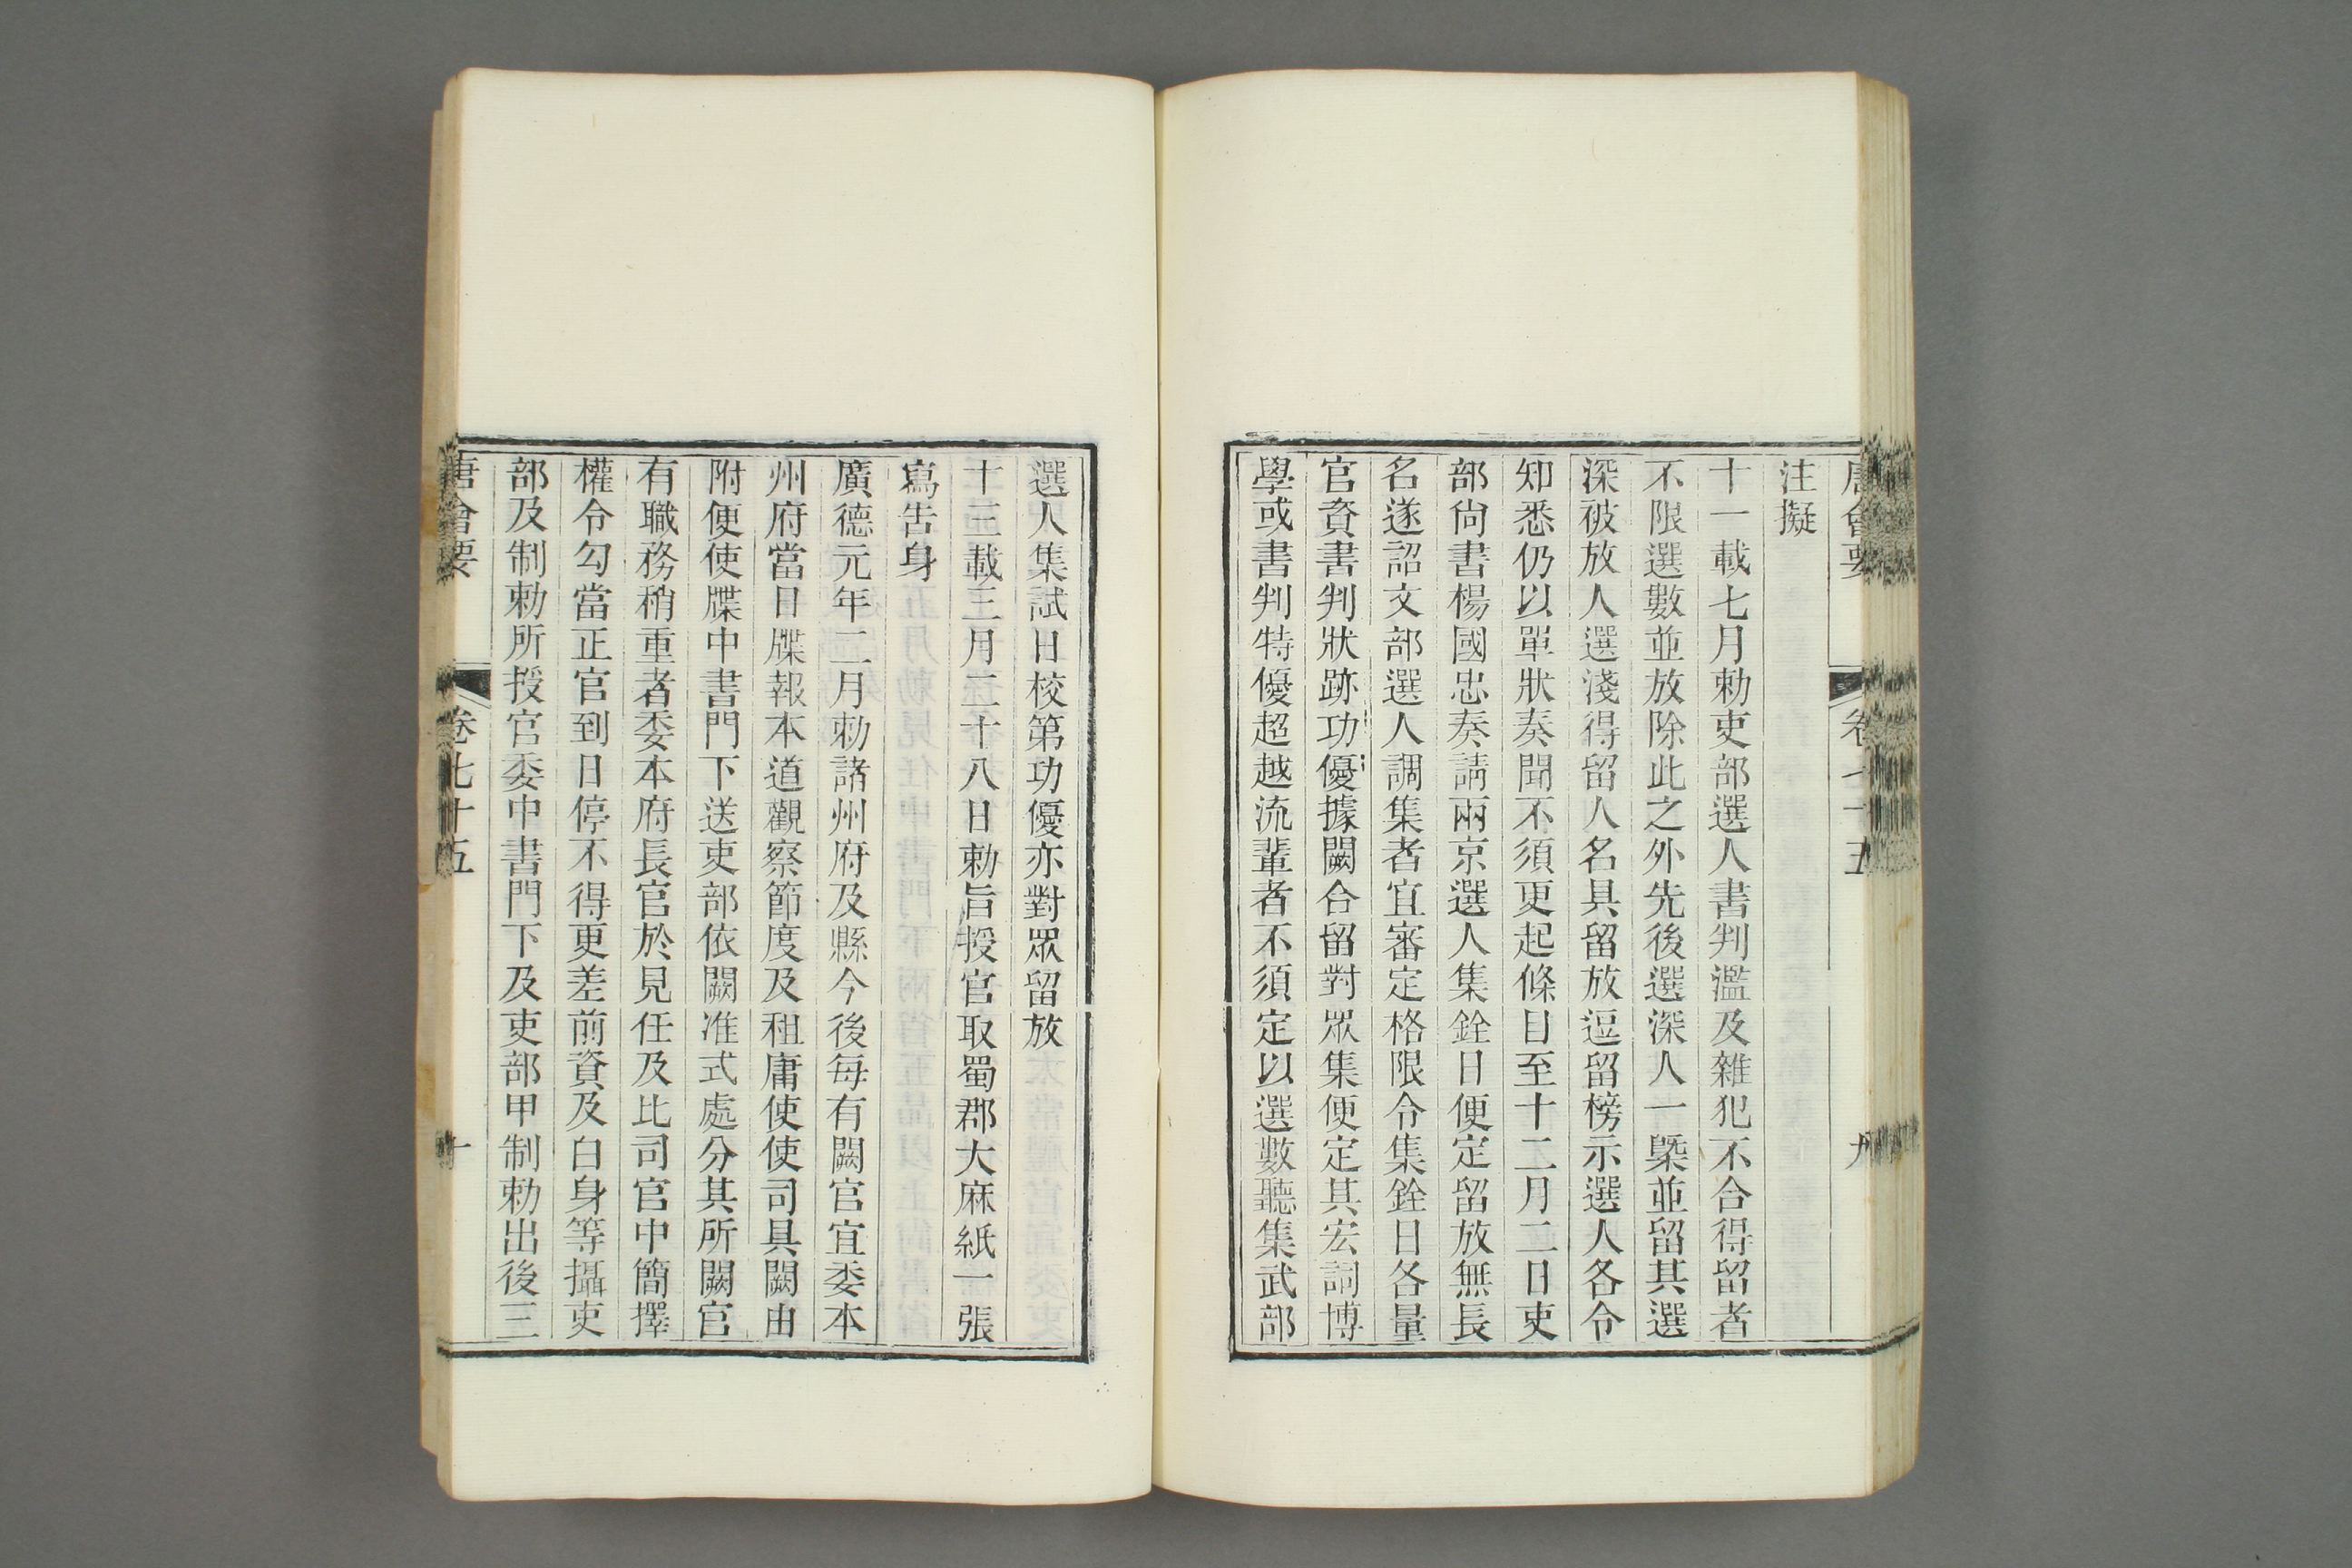 唐會要 卷七十五 九
注擬
十一載七月勅吏部選人書判濫及雜犯不合得留者
不限選數並放除此之外先後選深人一槩並留其選
深被放人選淺得留人名具留放逗留榜示選人各令
知悉仍以單狀奏聞不須更起條目至十二月二日吏
部尙書楊國忠奏請兩京選人集銓日便定留放無長
名遂詔文部選人調集者宜審定格限令集銓日各量
官資書判狀跡功優據闕合留對眾集便定其宏詞博
學或書判特優超越流輩者不須定以選數聽集武部
選人集試日校第功優亦對眾留放
十三載三月二十八日勅旨授官取蜀郡大麻紙一張
寫告身
廣德元年二月勅諸州府及縣今後每有闕官宜委本
州府當日牒報本道觀察節度及租庸使使司具闕由
附便使牒中書門下送吏部依闕准式處分其所闕官
有職務稍重者委本府長官於見任及比司官中簡擇
權令勾當正官到日停不得更差前資及白身等攝吏
部及制勅所授官委中書門下及吏部甲制勅出後三
唐會要 卷七十五 十